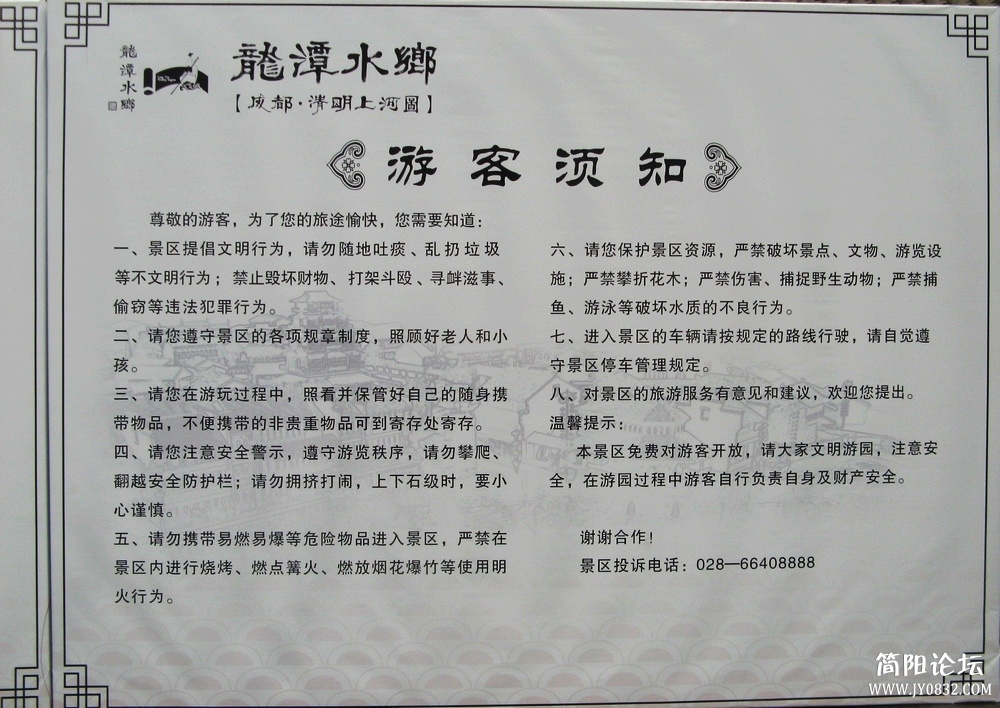 龍潭水鄉
龍潭水鄉
【成都·清明上河圖】
游客须知
尊敬的游客，为了您的旅途愉快，您需要知道：
一、景区提倡文明行为，请勿随地吐痰、乱扔垃圾
等不文明行为；禁止毁坏财物、打架斗殴、寻衅滋事、
偷窃等违法犯罪行为。
二、请您遵守景区的各项规章制度，照顾好老人和小
孩。
三、请您在游玩过程中，照看并保管好自己的随身携
带物品，不便携带的非贵重物品可到寄存处寄存。
四、请您注意安全警示，遵守游览秩序，请勿攀爬、
翻越安全防护栏；请勿拥挤打闹，上下石级时，要小
心谨慎。
五、请勿携带易燃易爆等危险物品进入景区，严禁在
景区内进行烧烤、燃点篝火、燃放烟花爆竹等使用明
火行为。
六、请您保护景区资源，严禁破坏景点、文物、游览设
施；严禁攀折花木；严禁伤害、捕捉野生动物；严禁捕
鱼、游泳等破坏水质的不良行为。
七、进入景区的车辆请按规定的路线行驶，请自觉遵
守景区停车管理规定。
八、对景区的旅游服务有意见和建议，欢迎您提出。
温馨提示：
本景区免费对游客开放，请大家文明游园，注意安
全，在游园过程中游客自行负责自身及财产安全。
谢谢合作！
景区投诉电话：028—66408888
简阳论坛
WWW.JY0832.COM